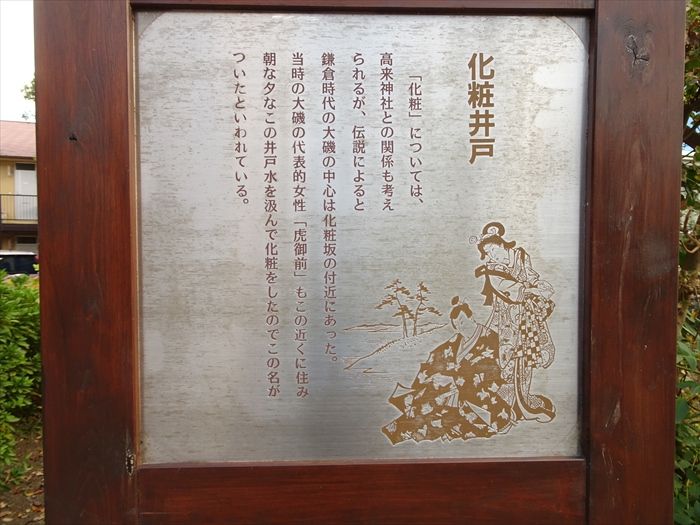 化粧井戸
「化粧」については、
高来神社との関係も考え
られるが、伝説によると
鎌倉時代の大磯の中心は化粧坂の付近にあった。
当時の大磯の代表的女性「虎御前」もこの近くに住み
朝な夕なこの井戸水を汲んで化粧をしたのでこの名が
ついたといわれている。